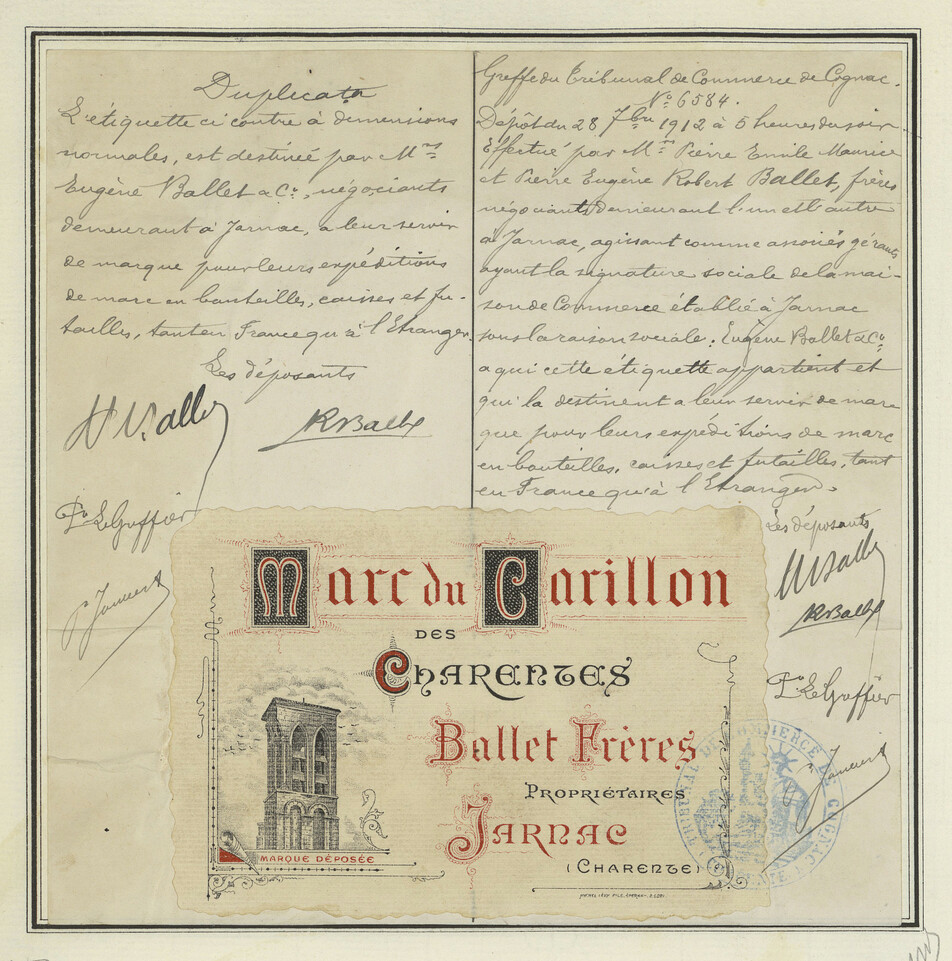 Duplicata
L'étiquette ci contre à dimensions
normales, est destinée par Mrs
Eugène Ballet & Co, négociants
demeurant à Jarnac, a leur servir
de marque pour leurs expéditions
de marc en bouteilles, caisses et fu-
tailles, tant en France qu'à l'Etranger.
Les déposants
RBallet
Po Le Greffier
Greffe du Tribunal de Commerce de Cognac.
No 6584.
Dépôt du 28 7bre 1912 à 5 heures du soir
Effectué par Mrs Pierre Emile Maurice
et Pierre Eugène Robert Ballet, frères
négociants demeurant l'un et l'autre
à Jarnac, agissant comme associés gérants
ayant la signature sociale de la mai-
son de Commerce établie à Jarnac
sous la raison sociale: Eugène Ballet & Co
a qui cette étiquette appartient et
qui la destinent a leur servir de mar
que pour leurs expéditions de marc
en bouteilles, caisses et futailles, tant
en France qu'à l'Etranger.
Les déposants
MBallet
RBallet
Po Le Greffier
Marc du Carillon
DES
CHARENTES
Ballet Frères
PROPRIÉTAIRES
JARNAC
(CHARENTE)
MARQUE DÉPOSÉE
TRIBUNAL DE COMMERCE DE COGNAC